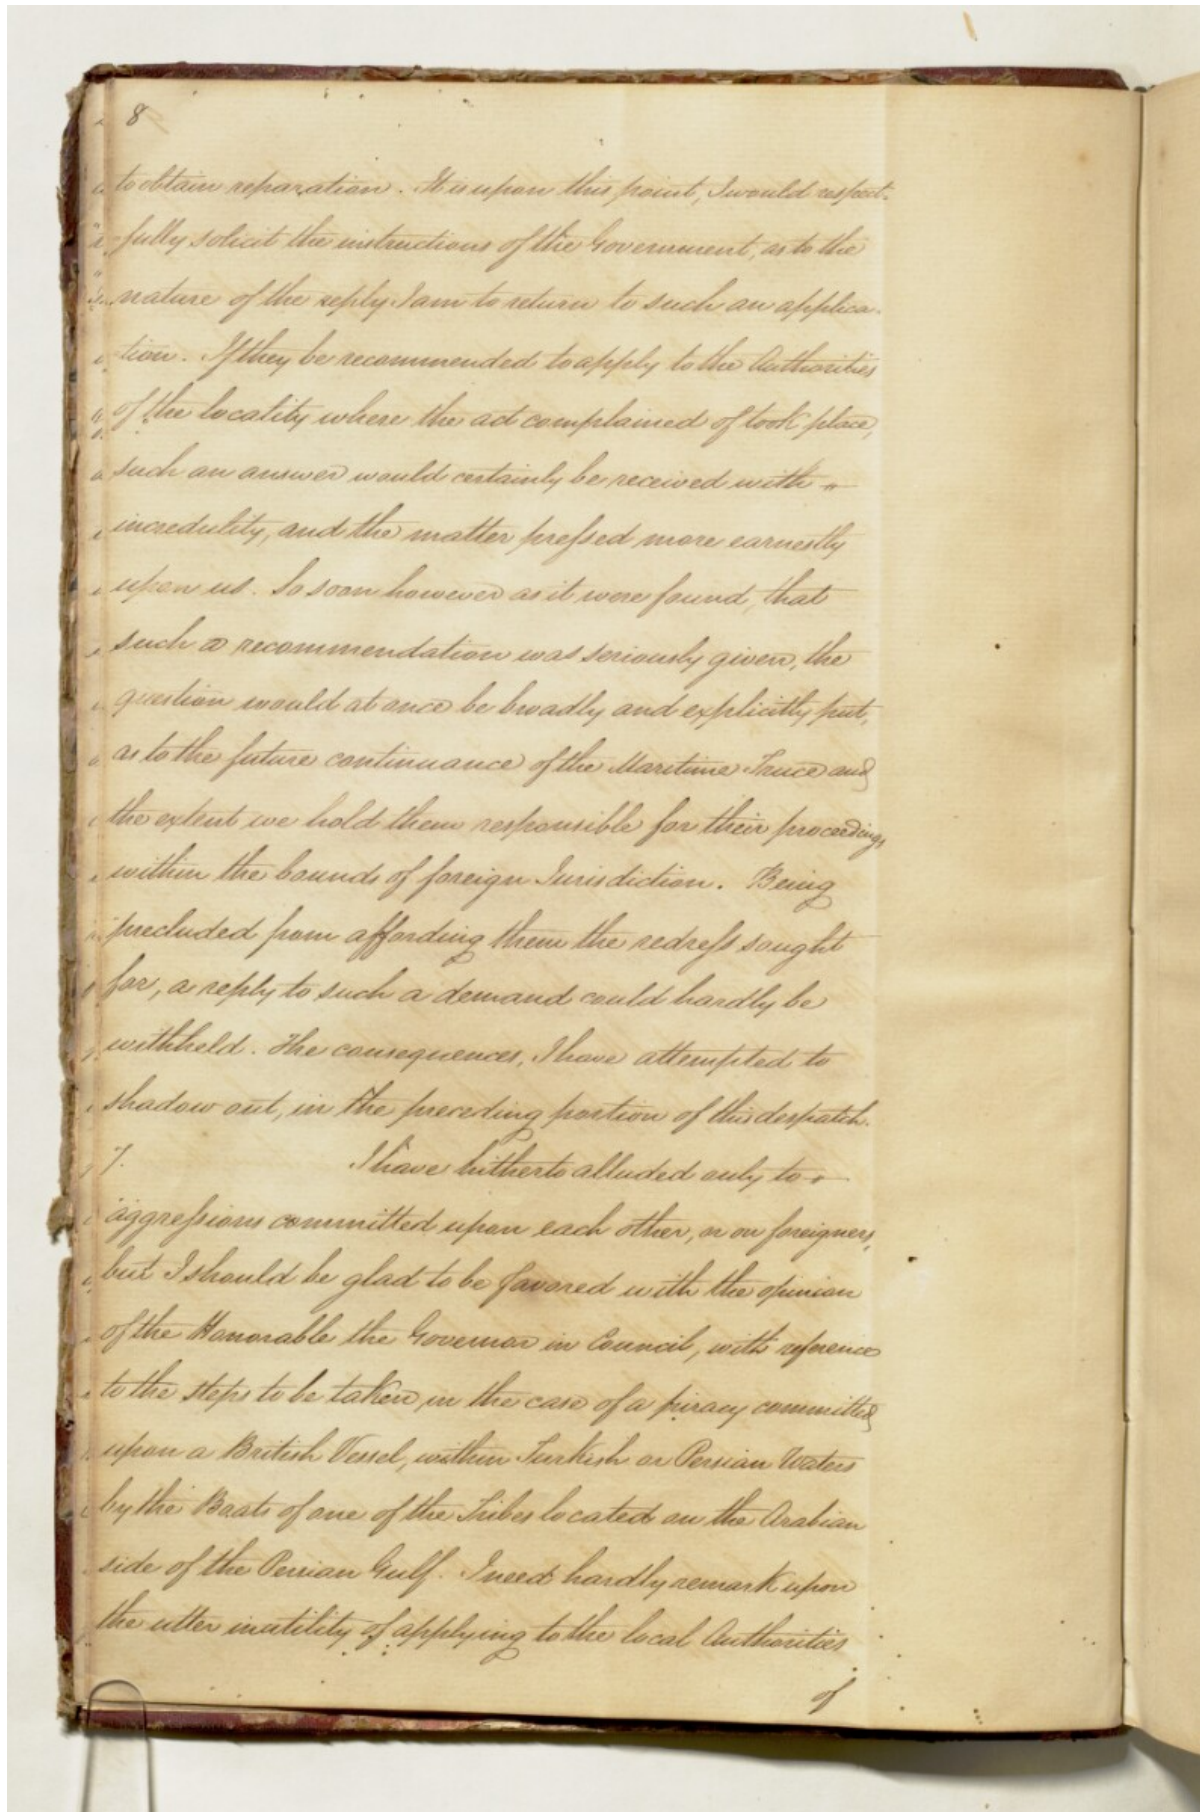 8
to obtain reparation. It is upon this point, I would respect-
fully solicit the instructions of the Government, as to the
nature of the reply I am to return to such an applica-
tion. If they be recommended to apply to the Authorities
of the locality where the act complained of took place,
such an answer would certainly be received with
incredulity, and the matter pressed more earnestly
upon us. So soon however as it were found, that
such a recommendation was seriously given, the
question would at once be broadly and explicitly put,
as to the future continuance of the Maritime Truce and
the extent we hold them responsible for their proceedings
within the bounds of foreign Jurisdiction. Being
precluded from affording them the redress sought
for, a reply to such a demand could hardly be
withheld. The consequences, I have attempted to
shadow out, in the preceding portion of this despatch.
7. I have hitherto alluded only to
aggressions committed upon each other, or on foreigners,
but I should be glad to be favored with the opinion
of the Honorable the Governor in Council, with reference
to the steps to be taken, in the case of a piracy committed
upon a British Vessel, within Turkish or Persian Waters
by the Boats of one of the Tribes located on the Arabian
side of the Persian Gulf. I need hardly remark upon
the utter inutility of applying to the local Authorities
of